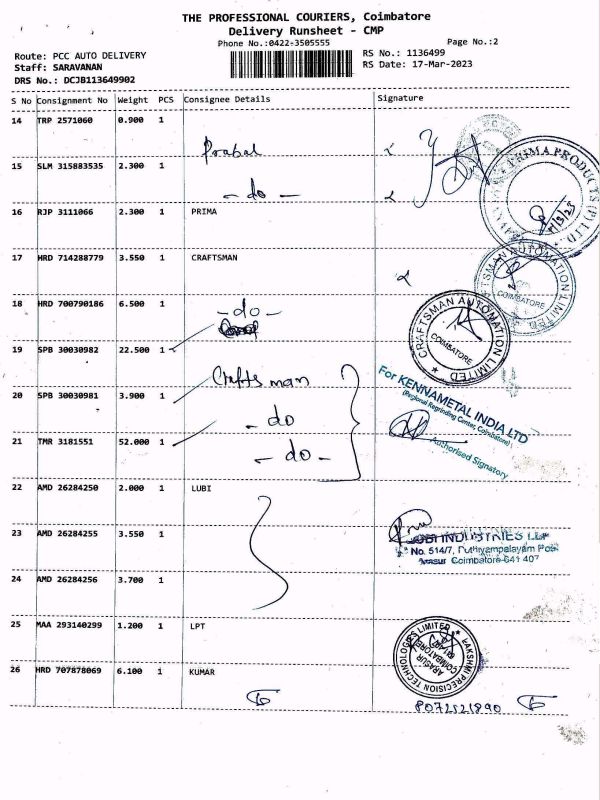 THE PROFESSIONAL COURIERS, Coimbatore
Delivery Runsheet - CMP
Phone No.:0422-3505555
Page No.:2
Route: PCC AUTO DELIVERY
RS No.: 1136499
Staff: SARAVANAN
RS Date: 17-Mar-2023
DRS No.: DCJB113649902
S No Consignment No Weight PCS Consignee Details Signature
14 TRP 2571060 0.900 1
Prabal
15 SLM 315883535 2.300 1
- do -
PRIMA PRODUCTS (P) LTD
16 RJP 3111066 2.300 1 PRIMA
17/3/23
17 HRD 714288779 3.550 1 CRAFTSMAN
CRAFTSMAN AUTOMATION LIMITED
COIMBATORE
18 HRD 700790186 6.500 1
- do -
CRAFTSMAN AUTOMATION LIMITED
COIMBATORE
19 SPB 30030982 22.500 1
Craftsman
20 SPB 30030981 3.900 1
For KENNAMETAL INDIA LTD
(Regional Regrinding Center, Coimbatore)
- do
Authorised Signatory
21 TMR 3181551 52.000 1
- do -
22 AMD 26284250 2.000 1 LUBI
23 AMD 26284255 3.550 1
INDUSTRIES LLP
No. 514/7, Puthiyampalayam Post
Coimbatore-641 407
24 AMD 26284256 3.700 1
25 MAA 293140299 1.200 1 LPT
LAKSHMI PRECISION TECHNOLOGIES LIMITED
ARASUR
COIMBATORE
26 HRD 707878069 6.100 1 KUMAR
8072521890